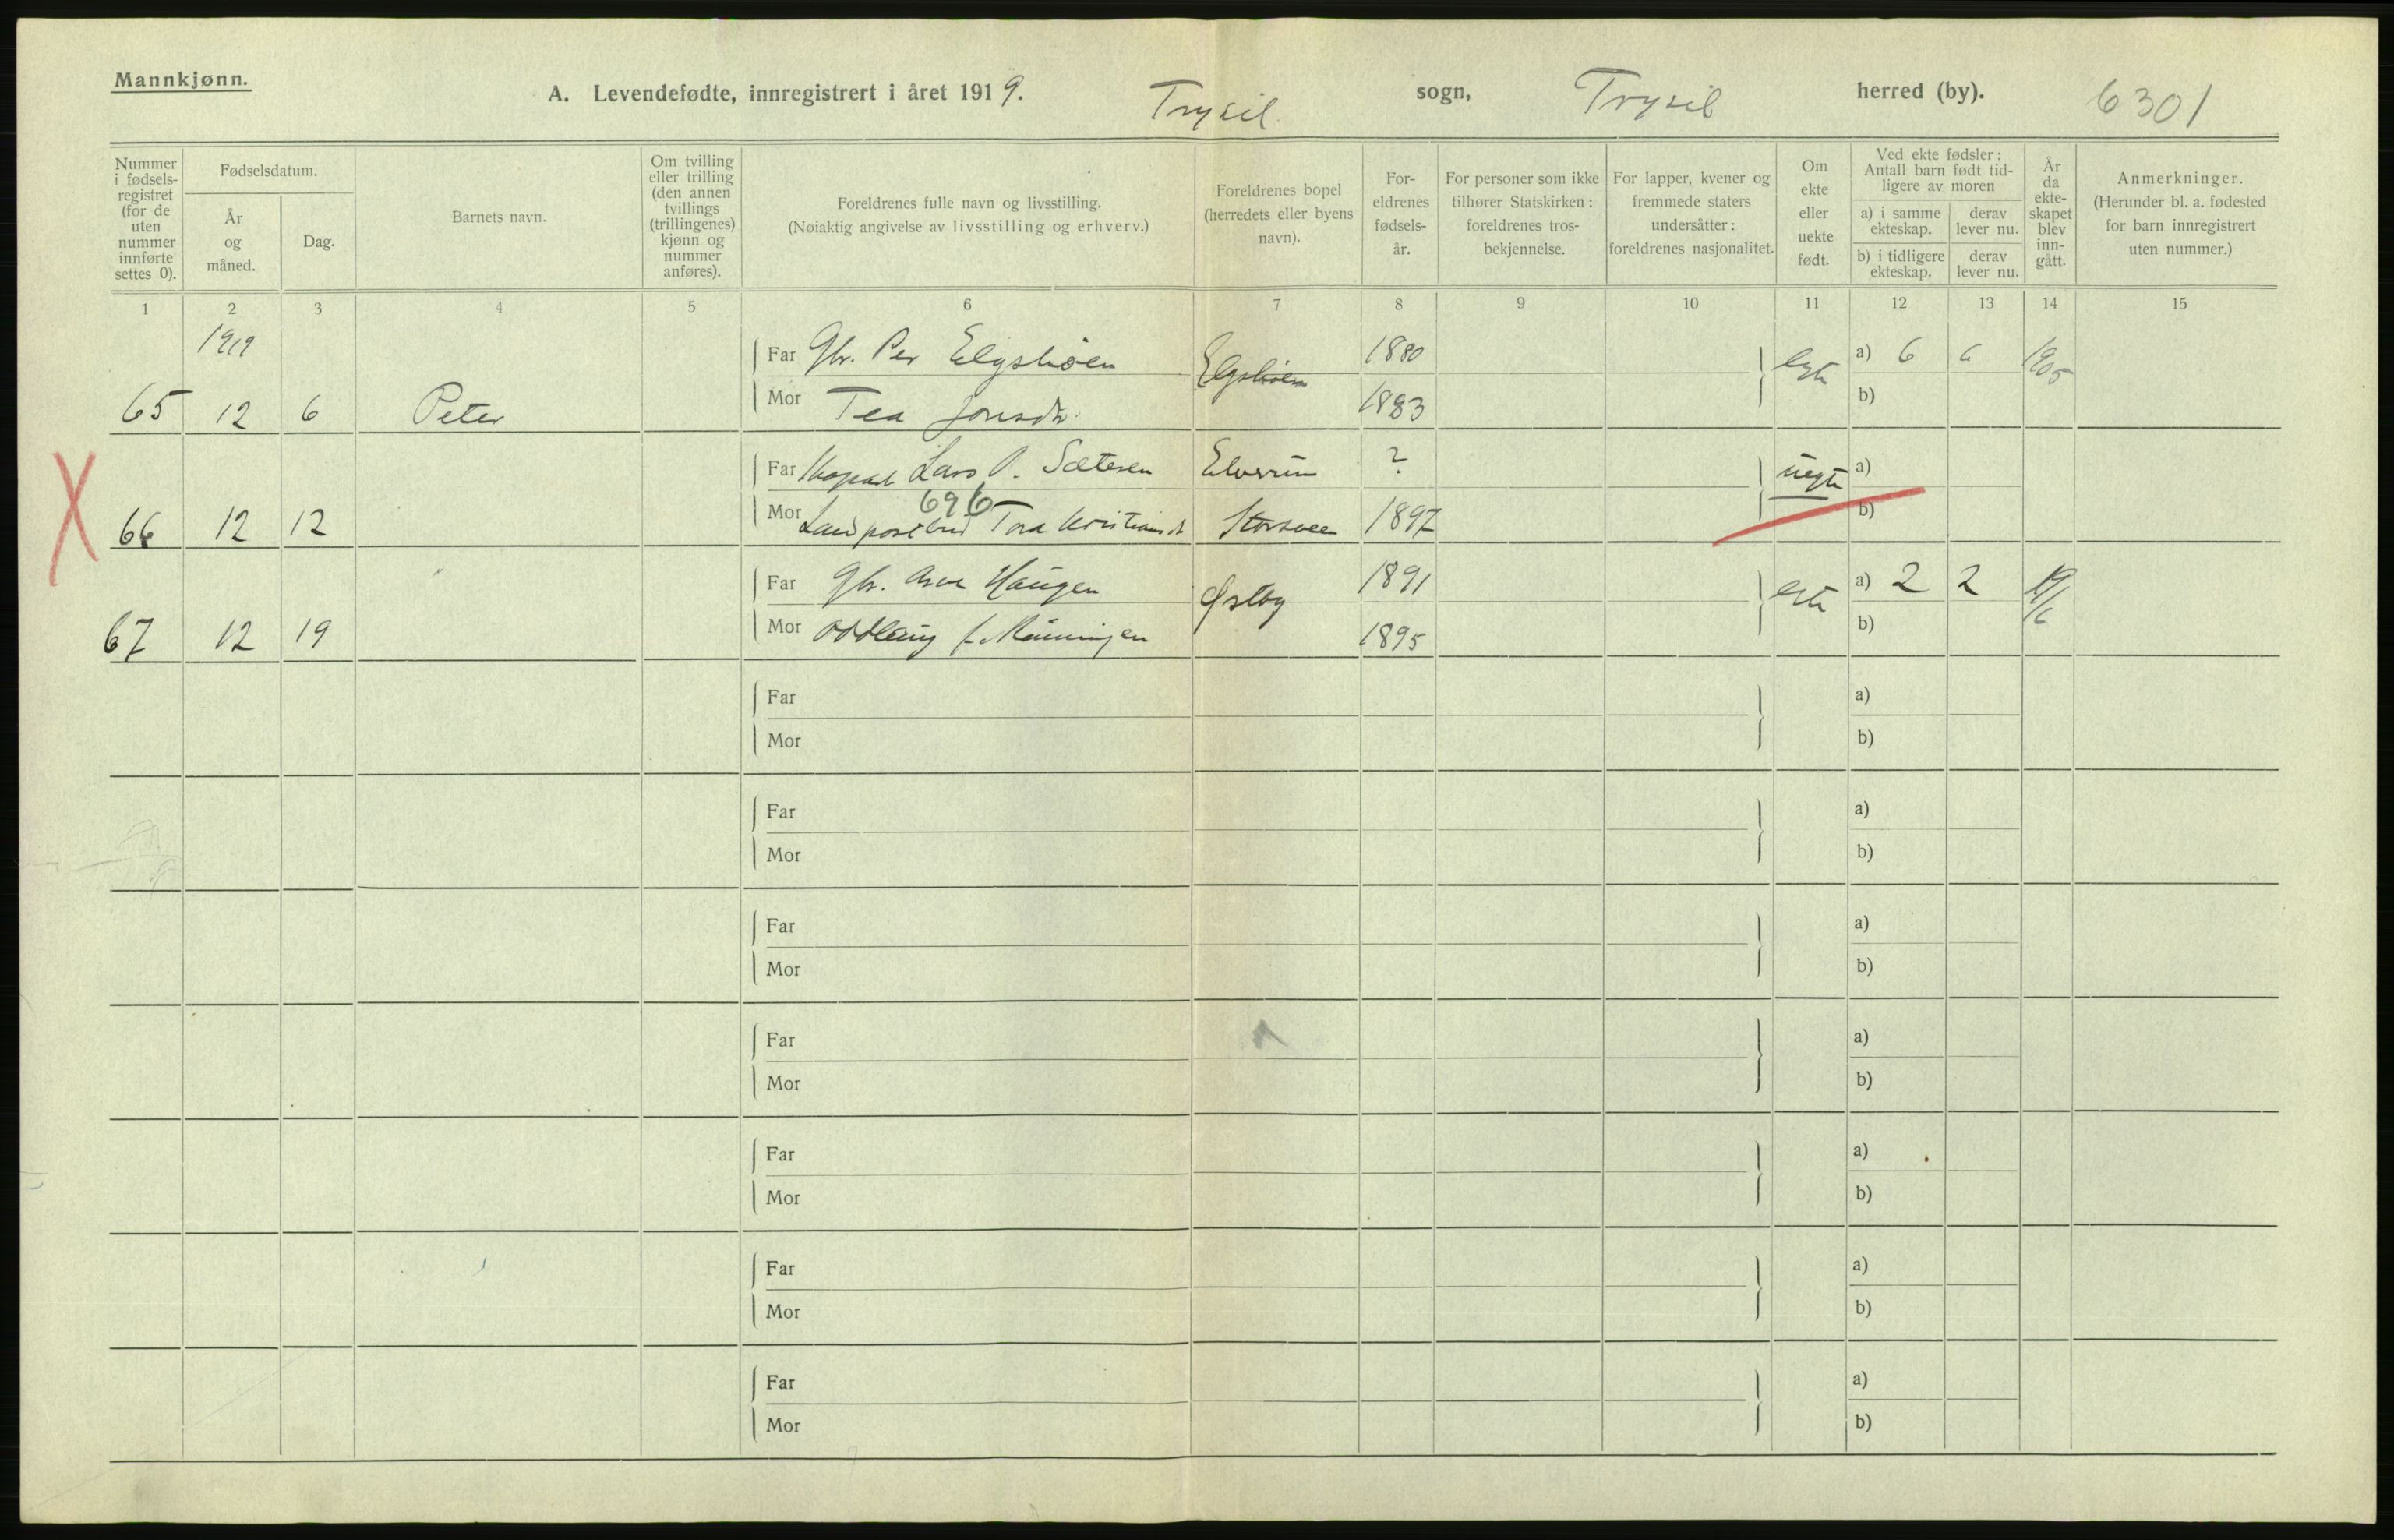 Mannkjønn.
A. Levendefødte, innregistrert i året 1919. Trysil sogn, Trysil herred (by). 6301
Nummer i fødsels-registret (for de uten nummer innførte settes 0).
Fødselsdatum.
År og måned.
Dag.
Barnets navn.
Om tvilling eller trilling (den annen tvillings (trillingenes) kjønn og nummer anføres).
Foreldrenes fulle navn og livsstilling.
(Nøiaktig angivelse av livsstilling og erhverv.)
Foreldrenes bopel (herredets eller byens navn).
For-eldrenes fødsels-år.
For personer som ikke tilhører Statskirken: foreldrenes tros-bekjennelse.
For lapper, kvener og fremmede staters undersåtter: foreldrenes nasjonalitet.
Om ekte eller uekte født.
Ved ekte fødsler: Antall barn født tid-ligere av moren
a) i samme ekteskap.
derav lever nu.
b) i tidligere ekteskap.
derav lever nu.
År da ekte-skapet blev inn-gått.
Anmerkninger.
(Herunder bl. a. fødested for barn innregistrert uten nummer.)
1 2 3 4 5 6 7 8 9 10 11 12 13 14 15
1919
Far Gbr. Per Elgshøen Elgshøen 1880 egte a) 6 6 1905
65 12 6 Peter Mor Tea Jonsdtr. 1883 b)
X
Far Lars P. Sætesen Elverum ? uegte a)
696
66 12 12 Mor Landpostbud Tora Kristiansdt Storsveen 1897 b)
Far Gbr. Arne Haugen Østby 1891 egte a) 2 2 19/6
67 12 19 Mor Oddlaug f. 1895 b)
Far a)
Mor b)
Far a)
Mor b)
Far a)
Mor b)
Far a)
Mor b)
Far a)
Mor b)
Far a)
Mor b)
Far a)
Mor b)